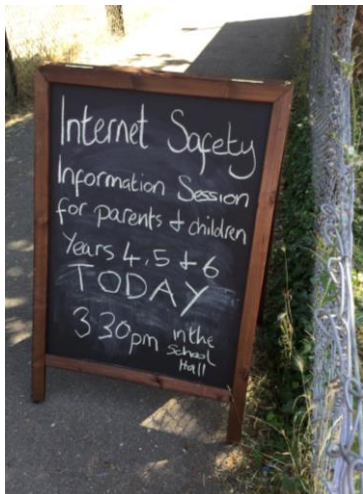 Internet Safety
Information Session
for parents & children
Years 4, 5 & 6
TODAY
3.30pm in the
School
Hall